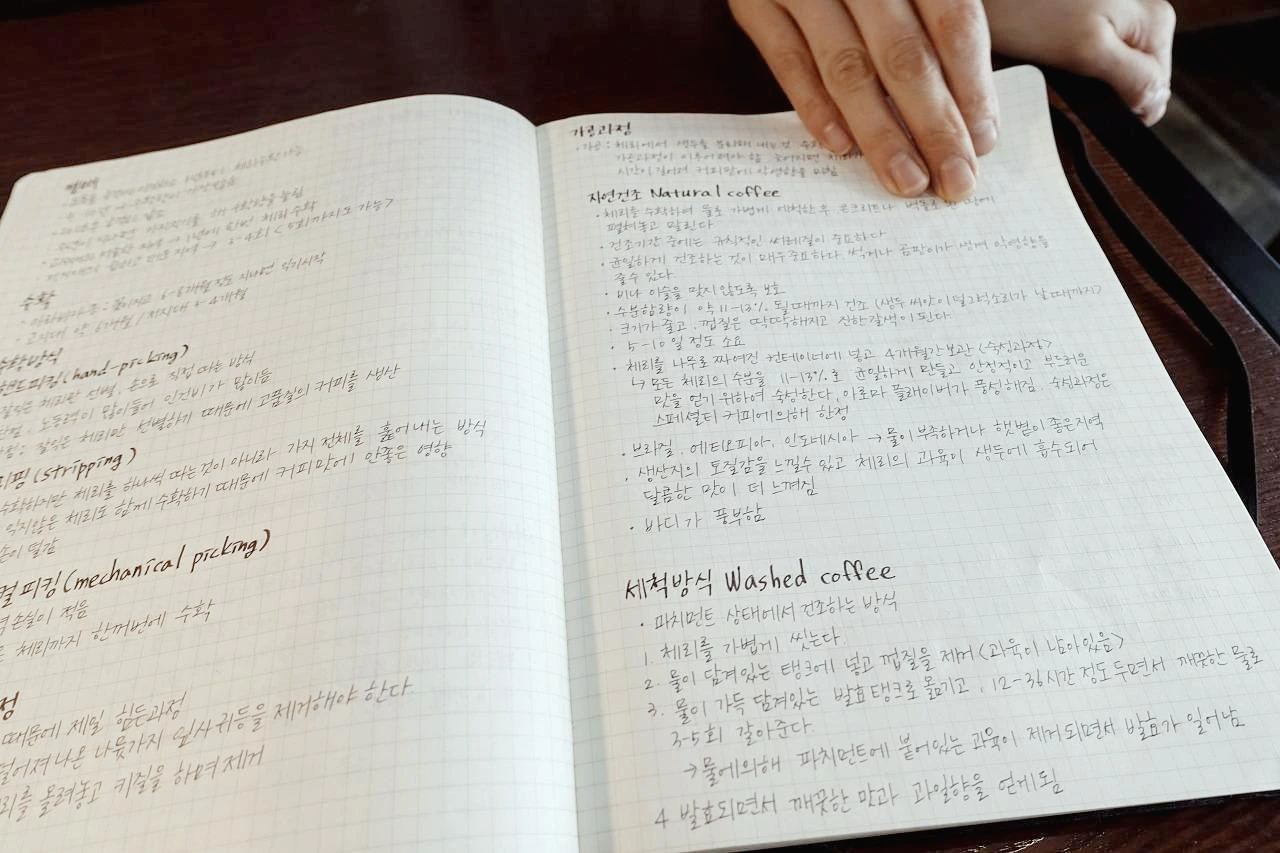 수확
수확방식
핸드피킹(hand-picking)
잘익은 체리만 선별, 손으로 직접 따는 방식
노동력이 많이들어 인건비가 많이듦
잘익은 체리만 선별하기 때문에 고품질의 커피를 생산
리핑(stripping)
수확하지만 체리를 하나씩 따는것이 아니라 가지 전체를 훑어내는 방식
익지않은 체리도 함께 수확하기 때문에 커피맛에 안좋은 영향
손이 덜감
컬 피킹(mechanical picking)
손실이 적음
체리까지 한꺼번에 수확
정
때문에 제일 힘든과정
떨어져나온 나뭇가지 잎사귀등을 제거해야 한다.
리를 올려놓고 키질을 하며 제거
가공과정
•가공: 체리에서 생두를 분리해 내는것
가공과정이 이루어져야 함 늦어지면
시간이 길어져 커피맛에 악영향을 미침
자연건조 Natural coffee
• 체리를 수확하여 물로 가볍게 세척한 후, 콘크리트나 벽돌로 된 땅에
펼쳐놓고 말린다
• 건조기간 중에는 규칙적인 써레질이 중요하다
• 균일하게 건조하는 것이 매우중요하다. 썩거나 곰팡이가 생겨 악영향을
줄수 있다.
• 비나 이슬을 맞지 않도록 보호
• 수분함량이 약 11-13% 될때까지 건조 (생두 씨앗이 덜그럭소리가 날때까지>
• 크기가 줄고, 껍질은 딱딱해지고 진한갈색이 된다.
• 5-10일 정도 소요
• 체리를 나무로 짜여진 컨테이너에 넣고 4개월간 보관 <숙성과정>
↳ 모든 체리의 수분을 11-13%로 균일하게 만들고 안정적이고 부드러운
맛을 얻기 위하여 숙성한다. 아로마 플래이버가 풍성해짐. 숙성과정은
스페셜티 커피에의해 한정
• 브라질, 에티오피아, 인도네시아 → 물이 부족하거나 햇볕이 좋은지역
• 생산지의 토질감을 느낄수 있고 체리의 과육이 생두에 흡수되어
달콤한 맛이 더 느껴짐
• 바디가 풍부함
세척방식 Washed coffee
• 파치먼트 상태에서 건조하는 방식
1. 체리를 가볍게 씻는다.
2. 물이 담겨있는 탱크에 넣고 껍질을 제거 <과육이 남아있음>
3. 물이 가득 담겨있는 발효탱크로 옮기고, 12-36시간 정도 두면서 깨끗한 물로
3-5회 갈아준다.
→물에의해 파치먼트에 붙어있는 과육이 제거되면서 발효가 일어남
4 발효되면서 깨끗한 맛과 과일향을 얻게됨